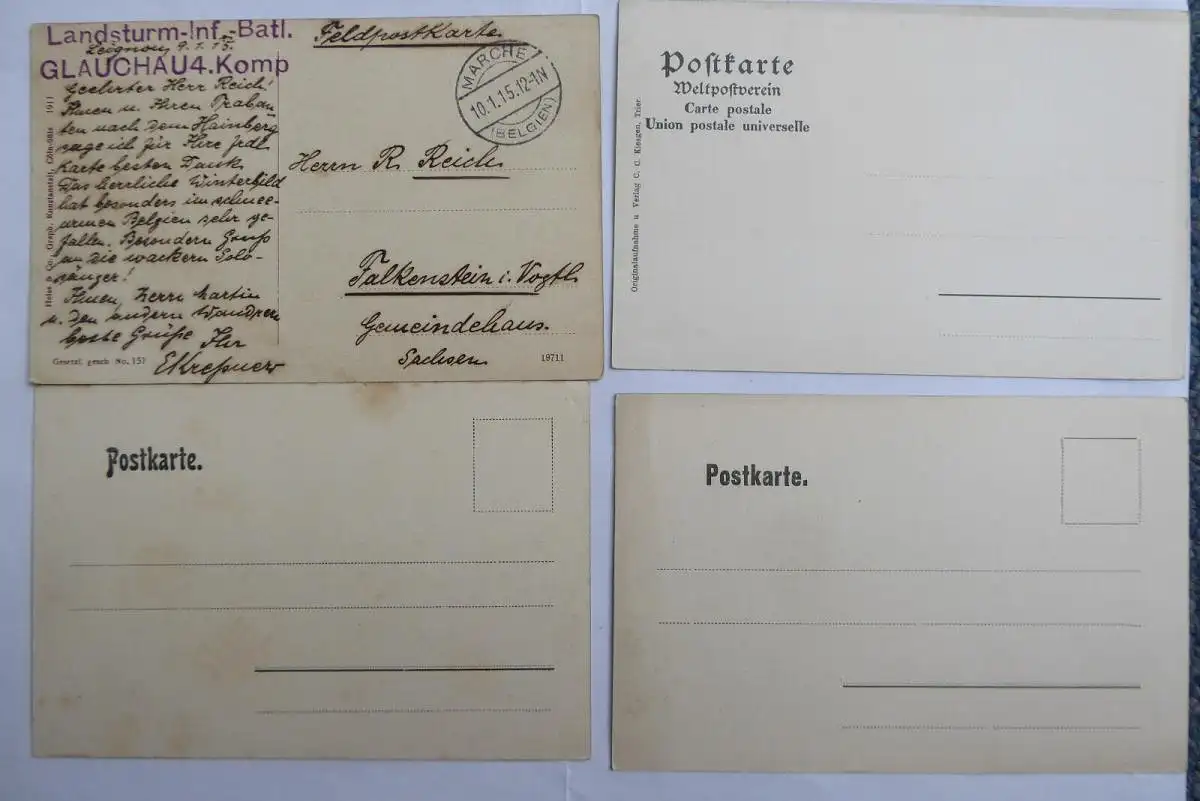 Landsturm-Inf.-Batl.
Leignon, 9.1.15.
GLAUCHAU 4. Komp
Geehrter Herr Reich!
Ihnen u. Ihren Traban-
ten nach dem Hainberg
sage ich für Ihre frdl.
Karte besten Dank.
Das herrliche Winterbild
hat besonders im schnee-
armen Belgien sehr ge-
fallen. Besondern Gruß
an die wackern Solo-
sänger!
Ihnen, Herrn Martin
u. den andern Wandrern
beste Grüße Ihr
Feldpostkarte
MARCHE
10.1.15.12-1N
(BELGIEN)
Herrn R. Reich
Falkenstein i. Vogtl.
Gemeindehaus.
Sachsen
Graph. Kunstanstalt, Cöln-Sülz 1911
General. gesch No. 151
19711
Postkarte
Weltpostverein
Carte postale
Union postale universelle
Originalaufnahme u Verlag C. C. Kiesgen, Trier.
Postkarte.
Postkarte.